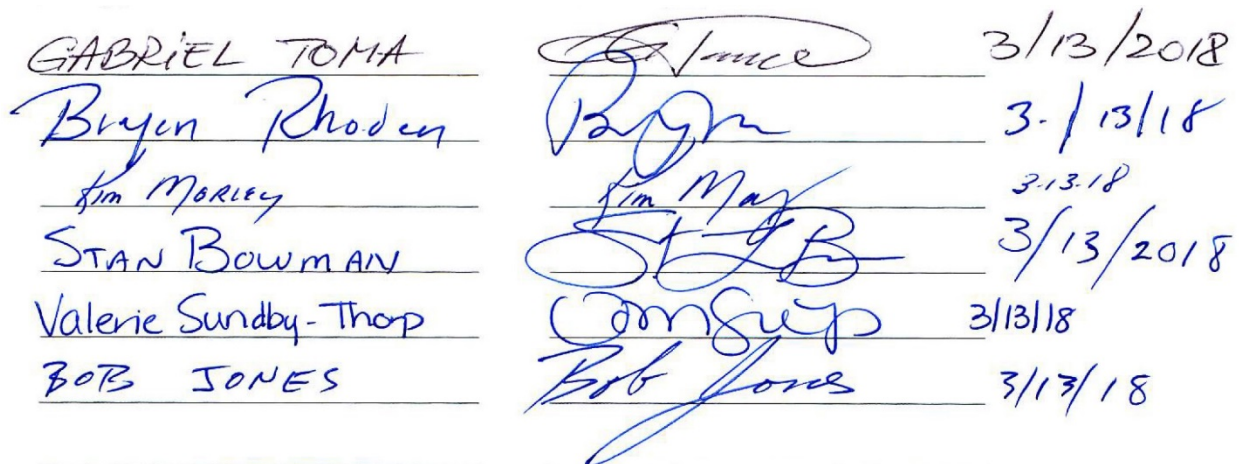 GABRiEL TOMA 3/13/2018
Bryen Rhoden 3-/13/18
Kim MORLEY Kim 3-13-18
STAN BOWMAN 3/13/2018
Valerie Sundby-Thorp 3/13/18
BOB JONES Bob Jones 3/13/18